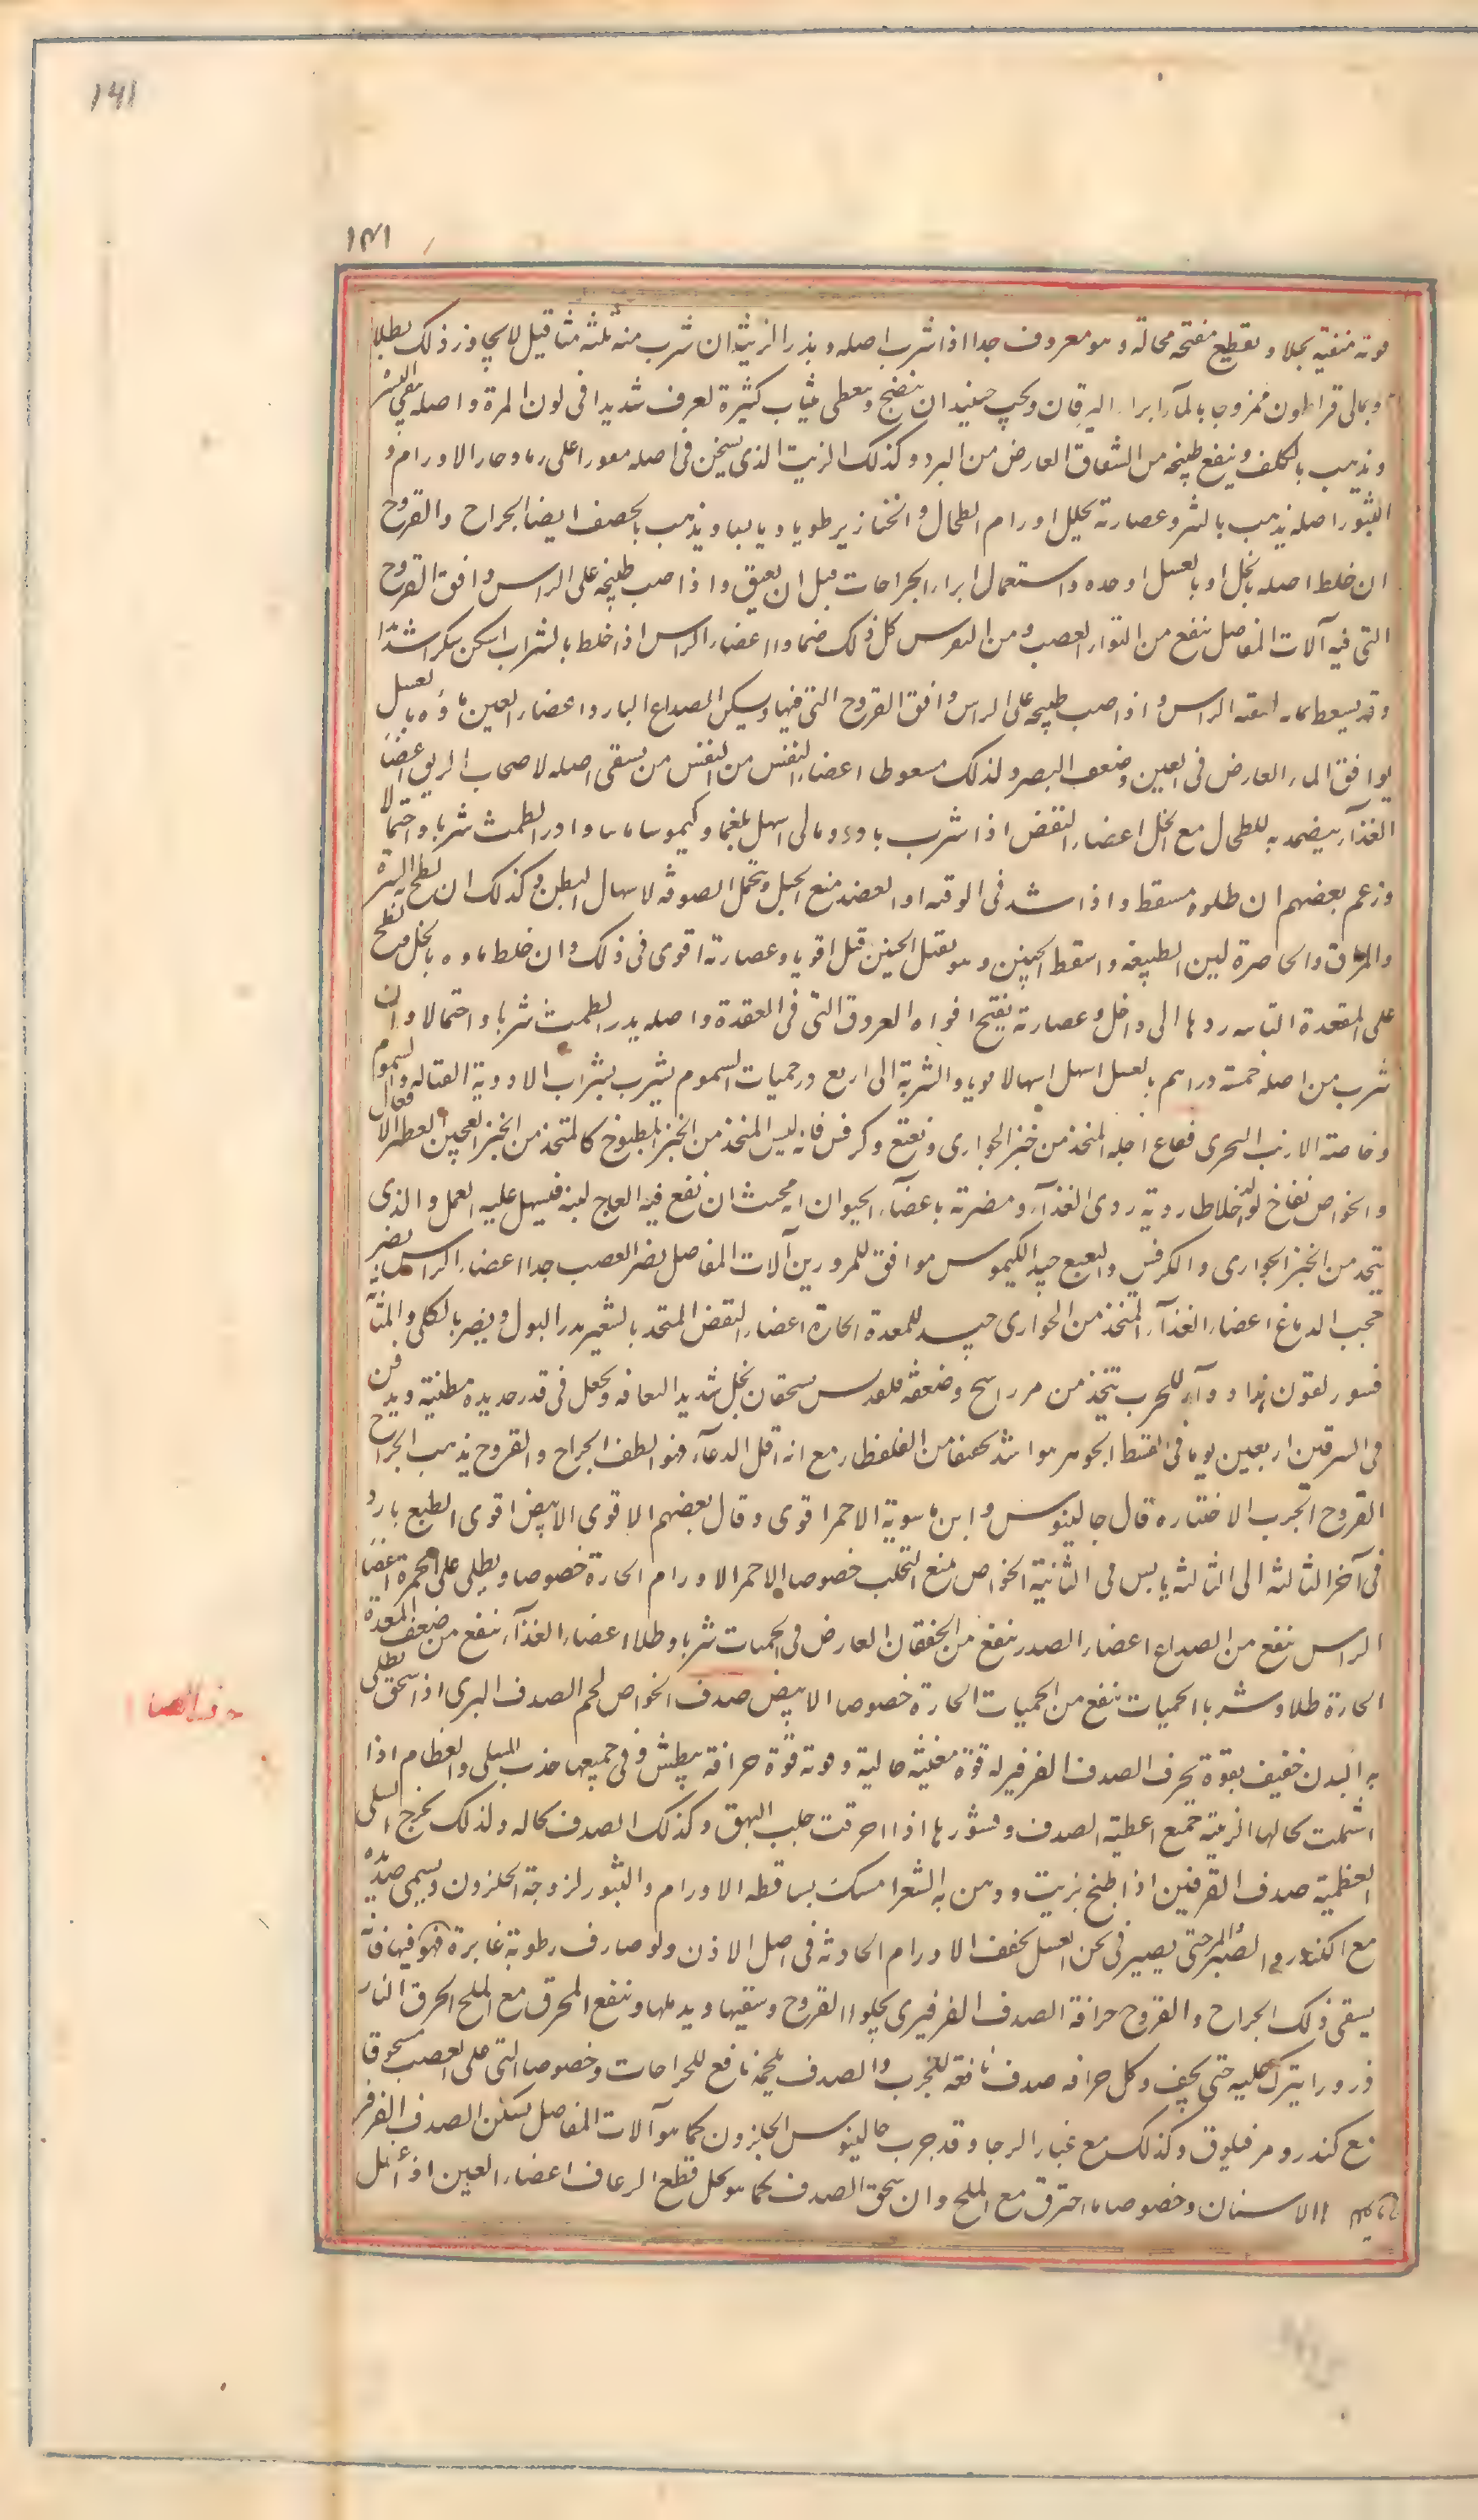 ١٤١
١٣١
قوته منقية بجلا وتقطيع مفتحة محاله وهو معروف جدا اذا شرب اصله وبذر الزينة ان شرب منه ثلثة مثاقيل لا يجاوز ذلك بطلا
وبمالى قراطون ممزوجا بالمآء ابراء اليرقان ويجب حينئذ ان ينضج ويغطى بثياب كثيرة لعرف شديدا فى لون المرة واصله ينقى البشرة
ويذهب بالكلف وينفع طبيخه من الشقاق العارض من البرد وكذلك الزيت الذى يسخن فى اصله مقورا على رماد حار الاورام و
البثور اصله يذهب بالبثر وعصارته تحليل اورام الطحال والخنازير طويا ويابسا ويذهب بالحصف ايضا الجراح والقروح
ان خلط اصله بالخل او بالعسل او وحده واستعمال ابراء الجراحات قبل ان يعيق واذا صب طبيخه على الراس وافق القروح
التى فيه آلات المفاصل ينفع من التواء العصب ومن النقرس كل ذلك ضمادا اعضاء الراس اذا خلط بالشراب اسكن سكرا شديدا
وقد يسعط بمائه لتنقية الراس واذا صب طبيخه على الراس وافق القروح التى فيها ويسكن الصداع البارد اعضاء العين ماؤه بالعسل
يوافق الماء العارض فى العين وضعف البصر وكذلك مسعوطا اعضاء النفس من النفس من يسقى اصله لاصحاب الربو اعضا
الغذآء يضمد به للطحال مع الخل اعضاء النفض اذا شرب بادرومالى اسهل بلغما وكيموسا مائيا وادر الطمث شربا واحتمالا
وزعم بعضهم ان طلوه مسقط واذا شد فى الرقبه او العضد منع الحبل وتحمل الصوفه لاسهال البطن وكذلك ان لطخ به السرة
والمراق والخاصرة لين الطبيعه واسقط الجنين وهو يقتل الجنين قتلا قويا وعصارته اقوى فى ذلك وان خلط ماؤه بالخل ولطخ
على المقعدة الناتيه ردها الى داخل وعصارته يفتح افواه العروق التى فى المقعدة واصله يدر الطمث شربا واحتمالا وان
شرب من اصله خمسة دراهم بالعسل اسهل اسهالا قويا والشربة الى اربع درخميات السموم يشرب بشراب الادوية القتاله والسموم
وخاصة الارنب البحرى فقاع اجله المتخذ من خبز الحوارى ونعنع وكرفس فانه ليس المتخذ من الخبز المطبوخ كالمتخذ من الخبز العجين العطر الافعال
والخواص نفاخ يولد اخلاطا ردية ردى الغذآء ومضرته باعضآء الحيوان انه بحيث ان نقع فيه العاج لينه فيسهل عليه العمل والذى
يتخذ من الخبز الحوارى والكرفس والنعنع جيد الكيموس موافق للمرورين آلات المفاصل يضر العصب جدا اعضاء الراس يضر
بحجب الدماغ اعضاء الغذآء المتخذ من الحوارى جيد للمعدة الحارة اعضاء النفض المتخذ بالشعير يدر البول ويضر بالكلى والمثانه
فسور لقون هذا دوآء للجرب يتخذ من مرداسنج وضعفه قلقديس يسحقان بخل شديد الثقافه ويجعل فى قدر حديده مطينة ويدفن
فى السرقين اربعين يوما فى القيظ الجوهر هو اشد تجفيفا من القلقطار مع انه اقل لذعا فهو الطف الجراح والقروح يذهب الجراح
القروح الجرب الاختياره قال جالينوس وابن ماسويه الاحمر اقوى وقال بعضهم الاقوى الابيض اقوى الطبع بارد
فى آخر الثالثه الى الثالثه يابس فى الثانية الخواص يمنع التحلب خصوصا الاحمر الاورام الحارة خصوصا ويطلى على الحمرة اعضا
الراس ينفع من الصداع اعضاء الصدر ينفع من الخفقان العارض فى الحميات شربا وطلاا اعضاء الغذآء ينفع من ضعف المعدة
الحارة طلا وشربا الحميات ينفع من الحميات الحارة خصوصا الابيض صدف الخواص لحم الصدف البرى اذا سحق يطلى
به البدن خفيف بقوة يحرف الصدف الفرفير له قوة مغنيه جالية وقوته قوة حراقه بيطش وفى جميعها جذب السلى والعظام اذا
اشتملت بحالها الزيته جميع اغطية الصدف وقشورها اذا احرقت جلب البهق وكذلك الصدف بحاله ولذلك يخرج السلى
العظمية صدف القرقين اذا طبخ بزيت ودهن به الشعر امسك تساقطه الاورام والبثور لزوجة الحلزون ويسمى صديه
مع الكندر والصبر والمر حتى يصير فى ثخن العسل يخفف الاورام الحادثه فى اصل الاذن ولو صارف رطوبة غايرة فهو فيها فانه
يسقى ذلك الجراح والقروح حراقة الصدف الفرفيرى يجلو القروح وينقيها ويدملها وينفع المحرق مع الملح لحرق النار
ذرورا يترك عليه حتى يجف وكل حراقه صدف نافعه للجرب والصدف بلحمه نافع للجراحات وخصوصا التى على العصب مسحوقا
مع كندر ومر فيلوق وكذلك مع غبار الرحا وقد جرب جالينوس الحلزون كما هو آلات المفاصل يسكن الصدف الفرفير
الاسنان وخصوصا ما احترق مع الملح وان سحق الصدف كما هو بخل قطع الرعاف اعضاء العين اذا غسل